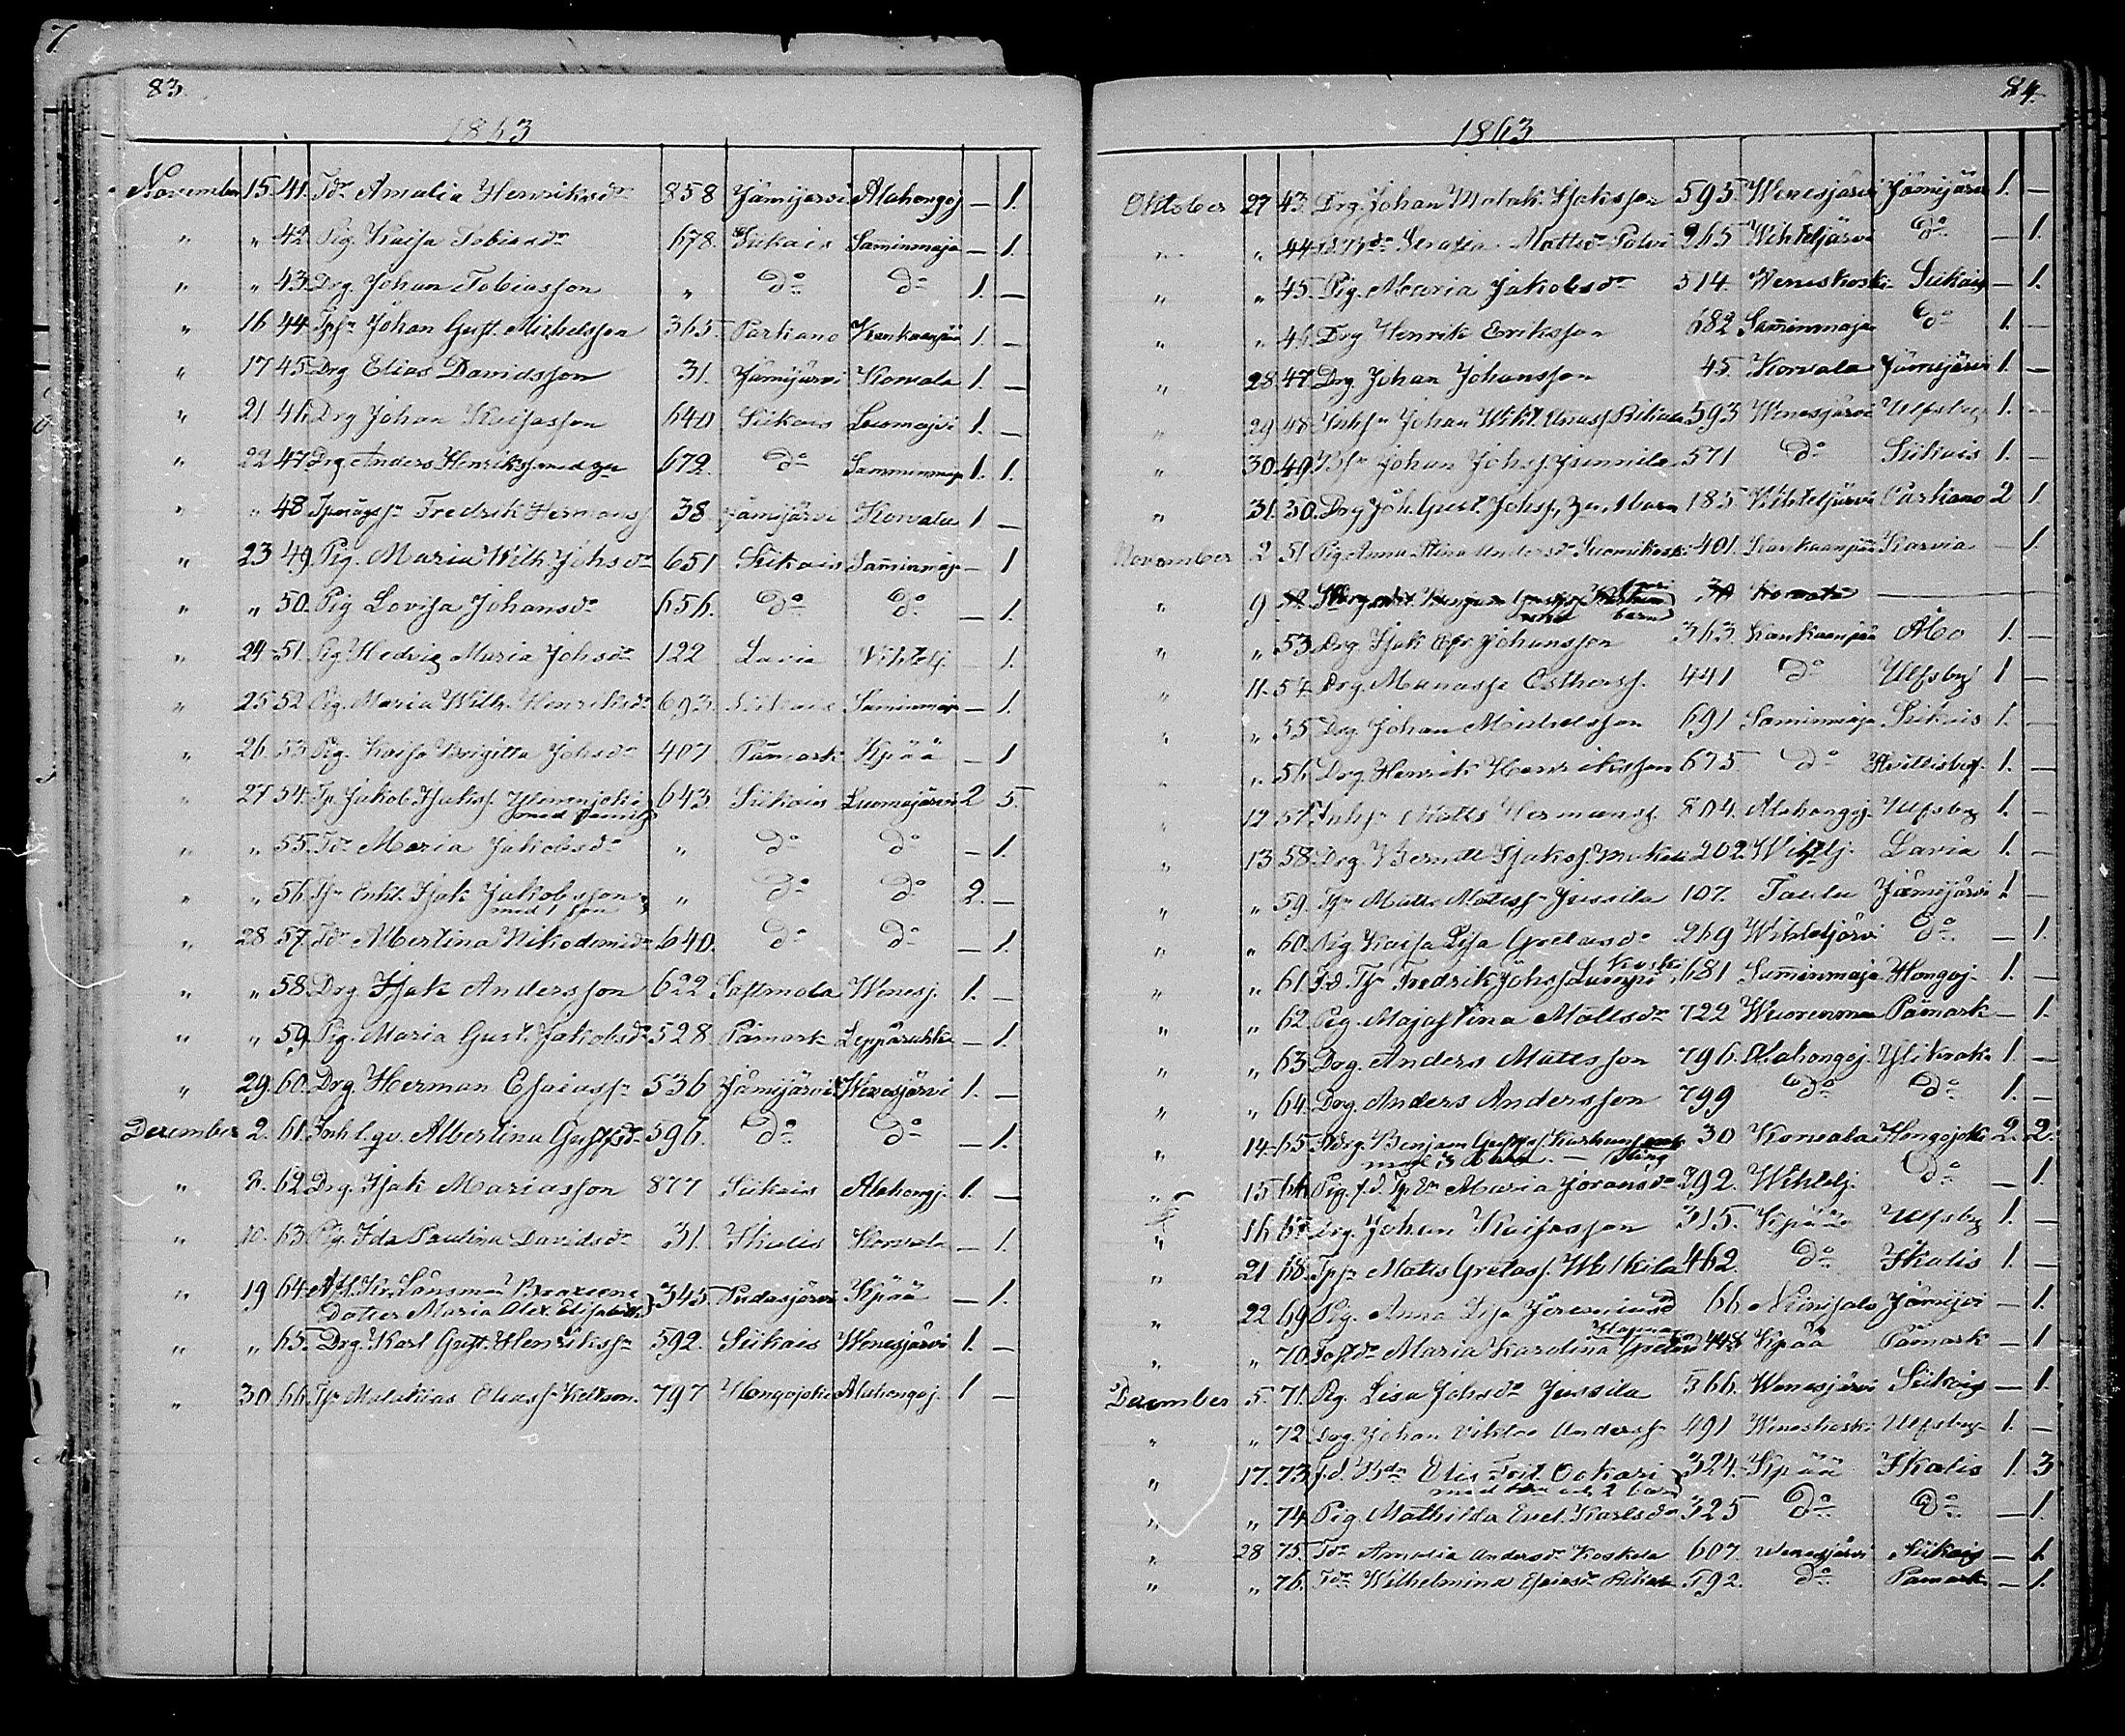 7
83
1863
November 15. 41. Td:r Amalia Henriksd:r 858 Jämijärvi Alahongoj — 1.
" " 42. Pig. Kaisa Tobiasd:r 678. Siikais Saminmaja — 1.
" " 43. Drg. Johan Tobiasson " D:o D:o 1. —
" 16 44. Johan Gust. Michelsson 365. Parkano Kankaanpää 1. —
" 17 45. Drg Elias Davidsson 31. Jämijärvi Korvala 1. —
" 21 46. Drg Johan Kaisasson 640 Siikais Luomajvi 1. —
" 22 47. Drg Anders Henrikss 672. D:o Samminmaja 1. 1.
" " 48 Fredrik Hermanss 38. Jämijärvi Korvala 1 —
" 23 49. Pig. Maria Wilh. Johsd:r 651 Siikais Saminmaja — 1
" " 50. Pig Lovisa Johansd:r 656. D:o D:o — 1.
" 24 51. Pig Hedvig Maria Johsd:r 122 Lavia Vihtelj. — 1.
" 25 52. Pig. Maria Wilh. Henriksd:r 693. Siikais Saminmaja — 1.
" 26. 53. Pig. Kaisa Brigitta Johsd:r 407 Påmark Kpää — 1
" 27 54. Tp. Jakob Isakss. Ylinenjoki 643. Siikais Luomajärvi 2 5.
med familj
" " 55. Td:r Maria Jakobsd:r " D:o D:o — 1.
" " 56. Enkl. Isak Jakobsson " D:o D:o 2. —
med 1 son
" 28 57. Td:r Albertina Nikodemid:r 640. D:o D:o — 1.
" " 58. Drg. Isak Andersson 622 Sastmola Wenesj. 1. —
" " 59. Pig. Maria Gust. Jakobsd:r 528 Påmark Leppäruhka — 1.
" 29. 60. Drg. Herman Esaiass:n 536 Jämijärvi Wenesjärvi 1. —
December 2. 61. Inh. l. qv. Albertina Gustfsd:r 596. D:o D:o — 1.
" 2. 62. Drg. Isak Mariasson 877 Siikais Alahongj. 1. —
" 10. 63. Pig. Ida Paulina Davidsd:r 31. Ikalis Korvala — 1.
" 19 64. Afl. Kr. Länsman Braxeens 345. Pudasjärvi Kpää — 1.
Dotter Maria Alex. Elisabeth
" " 65. Drg. Karl Gust. Henrikss:n 592. Siikais Wenesjärvi 1. —
" 30 66. Malakias Eliass:n 797 Hongojoki Alahongoj. 1 —
84.
1863
Oktober 27 43. Drg. Johan Malak. Isaksson 595. Wenesjärvi Jämijärvi 1. —
" " 44. Serafia Mattsd:r Palvi 265 Wihteljärvi D:o — 1.
" " 45. Pig. Maria Jakobsd:r 514. Weneskoski Siikais — 1.
" " 46. Drg Henrik Eriksson 682 Samminmaja D:o 1. —
" 28 47. Drg. Johan Johansson 45. Korvala Jämijärvi 1. —
" 29 48. Johan Wikt. 593 Wenesjärvi Ulfsby 1. —
" 30. 49. Johan Johss. Junnila 571 D:o Siikais 1. —
" 31. 50. Drg Joh. Gust. Johss. 185. Wihteljärvi Parkano 2 1.
November 2 51 Pig. Anna Stina Andersd:r Suomikoski 401. Kankaanpää Karvia — 1.
" 9. Korvala
" " 53. Drg. Isak Efr. Johansson 363. Kankaanpää Åbo 1. —
" 11. 54. Drg. Manasse Esthers:s. 441 D:o Ulfsby 1 —
" " 55 Drg Johan Michelsson 691 Saminmaja Siikais 1. —
" " 56. Drg. Henrik Henriksson 675. D:o Hvittisbof. 1. —
" 12. 57. Matts Hermanss. 804. Alahongoj. Ulfsby 1. —
" 13. 58. Drg. Berndt Isakss. 202. Wihtlj. Lavia 1. —
" " 59. Matts Matss:n Jussila 107. Taulu Jämijärvi 1. —
" " 60. Pig Kaisa Lisa Gretasd:r 269 Wihteljärvi D:o — 1.
" " 61. F.d. Tp:r Fredrik Johss. Lumpi koski 681 Samminmaja Hongoj. 1. —
" " 62. Pig. Majastina Mattsd:r 722 Wuorenmaa Påmark — 1.
" " 63. Drg. Anders Mattsson 796. Alahongoj. Ylikraka 1. —
" " 64. Drg. Anders Andersson 799 D:o D:o 1. —
" 14. 65. Benjam. Gustfs. 30 Korvala Hongojoki 2. 2.
med 3
" 15 66. Pig. f.d. Maria Joransd:r 292. Wihtelj. D:o — 1.
" 16 67. Drg. Johan Kaisasson 315. Kpää Ulfsby 1. —
" 21 68. Matts Gretass. 462. D:o Ikalis 1. —
" 22 69. Pig. Anna Lisa Jeremiasd 66 Niinisalo Jämijvi — 1.
" " 70. Maria Karolina 448 Kpää Påmark — 1
December 5. 71. Pig. Lisa Johsd:r Jussila 566. Wenesjärvi Siikais — 1.
" " 72. Drg. Johan Viktor Anderss:n 491 Weneskoski Ulfsby 1. —
" 17. 73. f.d. Elis 324. Kpää Ikalis 1. 3
med och 2 barn
" " 74. Pig. Mathilda Evel. Karlsd:r 325 D:o D:o — 1.
" 28 75. Td:r Amalia Andersd:r Koskela 607. Wenesjärvi Siikais — 1.
" " 76. Td:r Wilhelmina Esaiasd:r 592. D:o Påmark — 1.